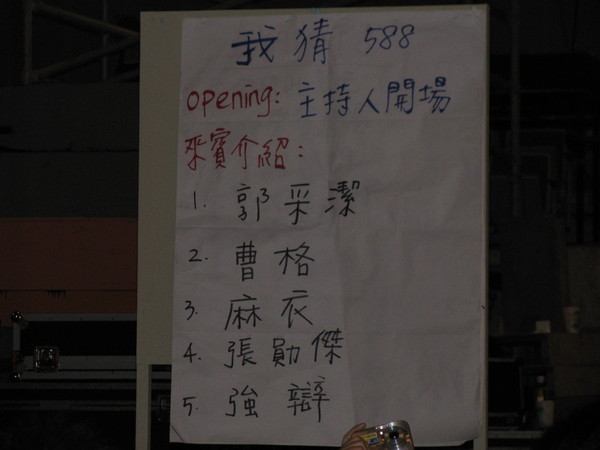 我猜 588
opening: 主持人開場
來賓介紹:
1. 郭采潔
2. 曹格
3. 麻衣
4. 張勛傑
5. 強辯